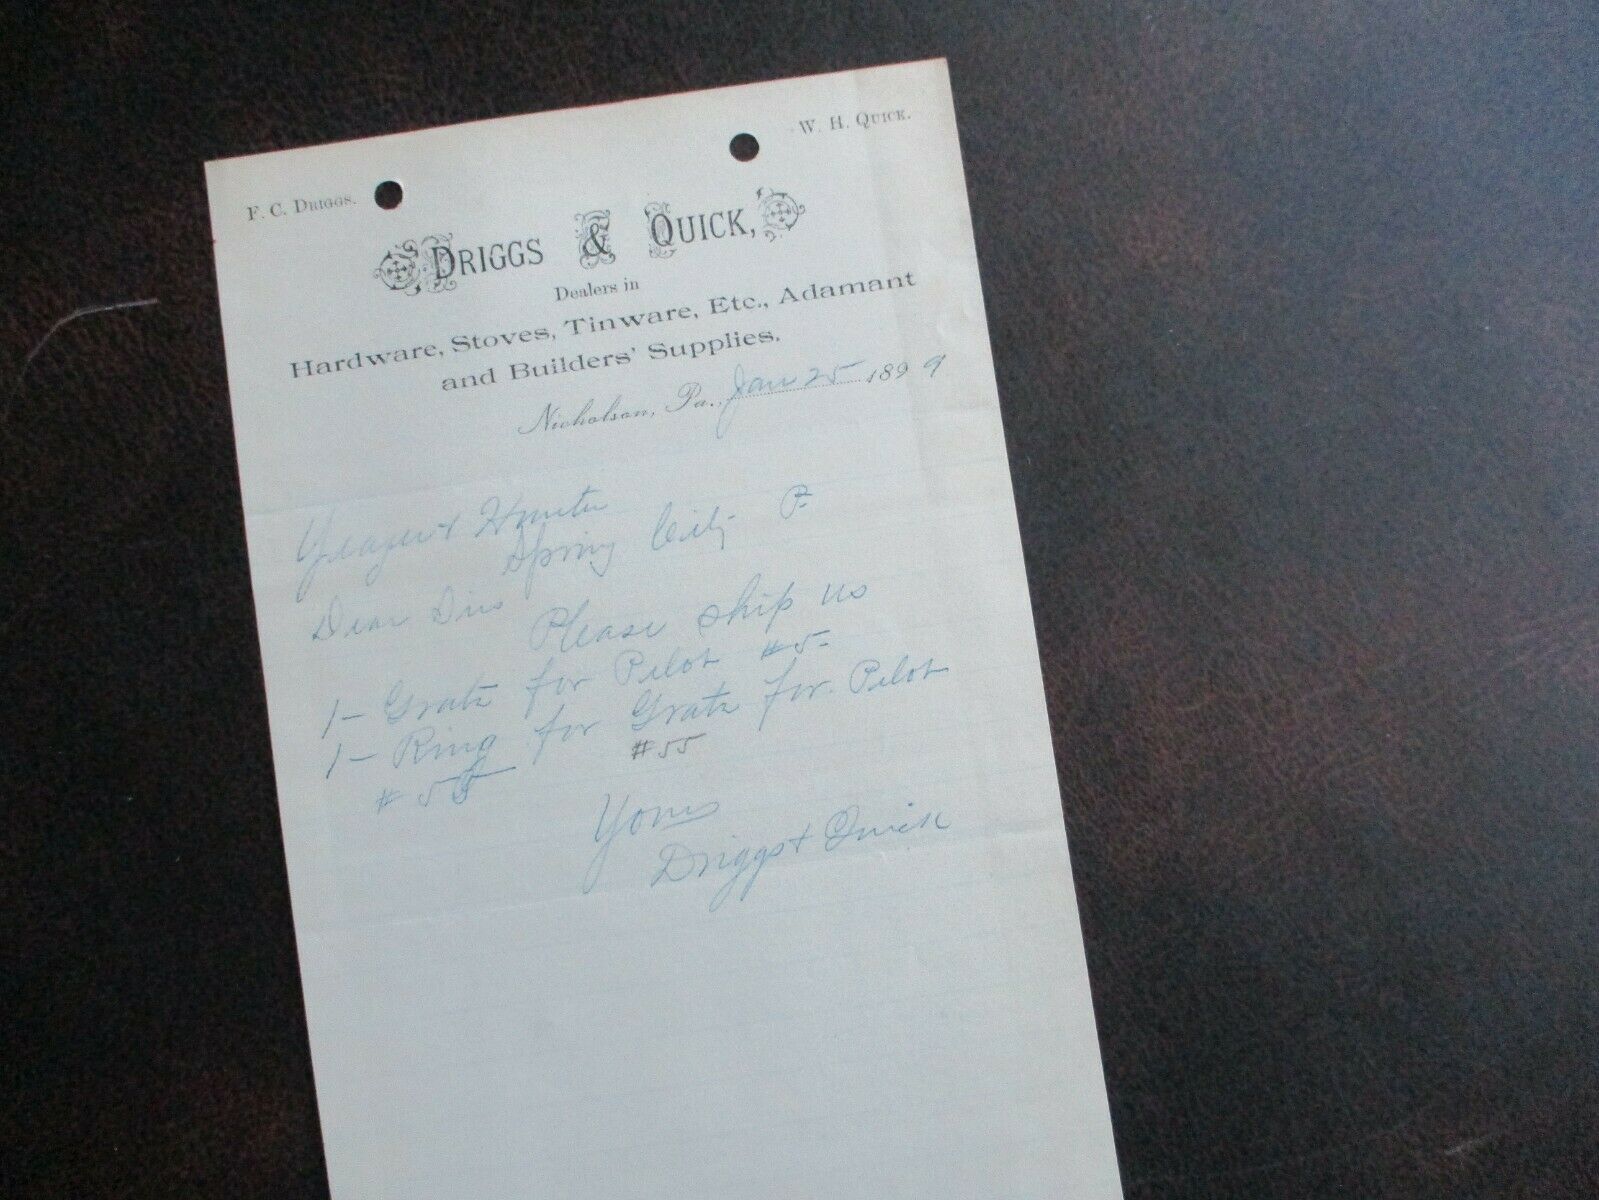 F. C. DRIGGS.
W. H. QUICK.
DRIGGS & QUICK,
Dealers in
Hardware, Stoves, Tinware, Etc., Adamant
and Builders' Supplies.
Nicholson, Pa., Jan 25 1899
Yeager & Hunter
Spring City P
Dear Sirs
Please ship us
1 - Grate for Pilot #5-
1 - Ring for Grate for Pilot
#55 #55
Yours
Driggs & Quick